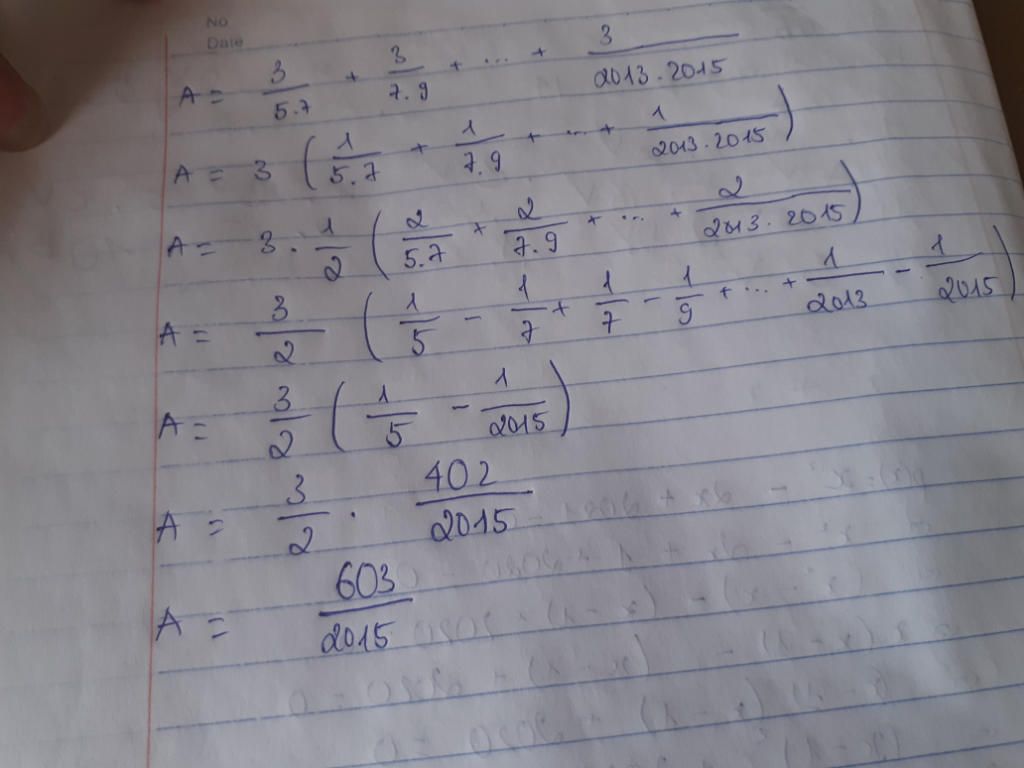 No
Date
A = 3/5.7 + 3/7.9 + ... + 3/2013.2015
A = 3 (1/5.7 + 1/7.9 + ... + 1/2013.2015)
A = 3 . 1/2 (2/5.7 + 2/7.9 + ... + 2/2013.2015)
A = 3/2 (1/5 - 1/7 + 1/7 - 1/9 + ... + 1/2013 - 1/2015)
A = 3/2 (1/5 - 1/2015)
A = 3/2 . 402/2015
A = 603/2015